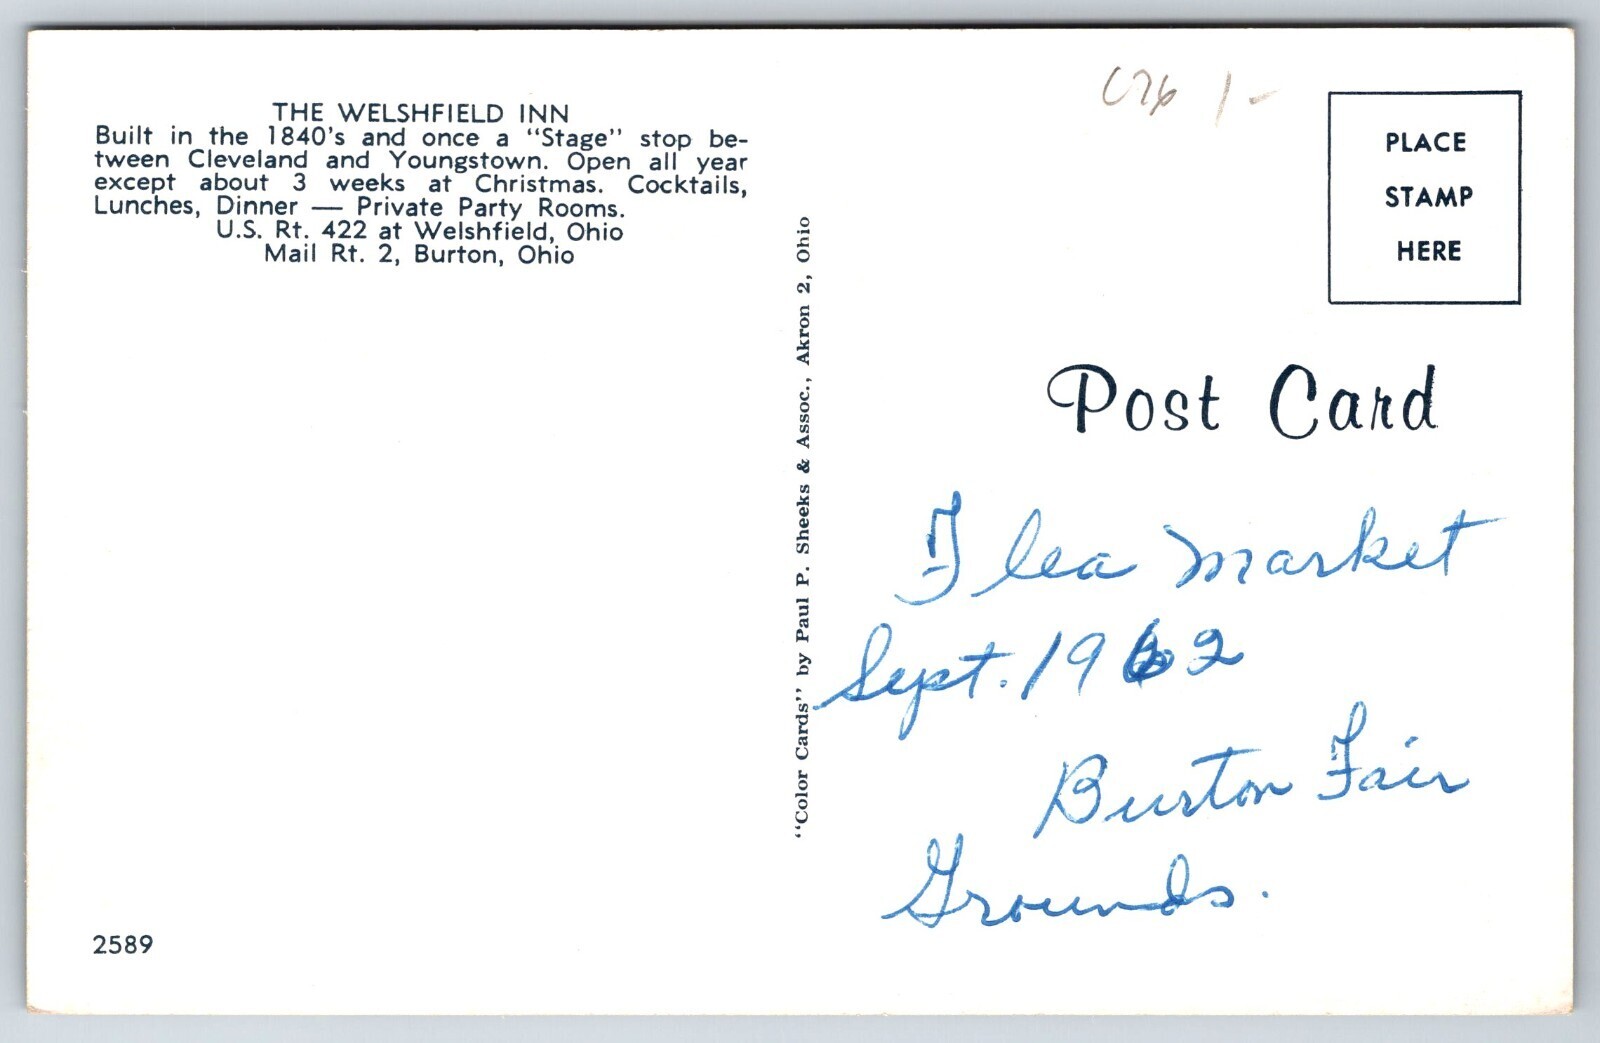 THE WELSHFIELD INN
Built in the 1840's and once a "Stage" stop be-
tween Cleveland and Youngstown. Open all year
except about 3 weeks at Christmas. Cocktails,
Lunches, Dinner — Private Party Rooms.
U.S. Rt. 422 at Welshfield, Ohio
Mail Rt. 2, Burton, Ohio
2589
"Color Cards" by Paul P. Sheeks & Assoc., Akron 2, Ohio
1-
PLACE
STAMP
HERE
Post Card
Flea Market
Sept. 1962
Burton Fair
Grounds.